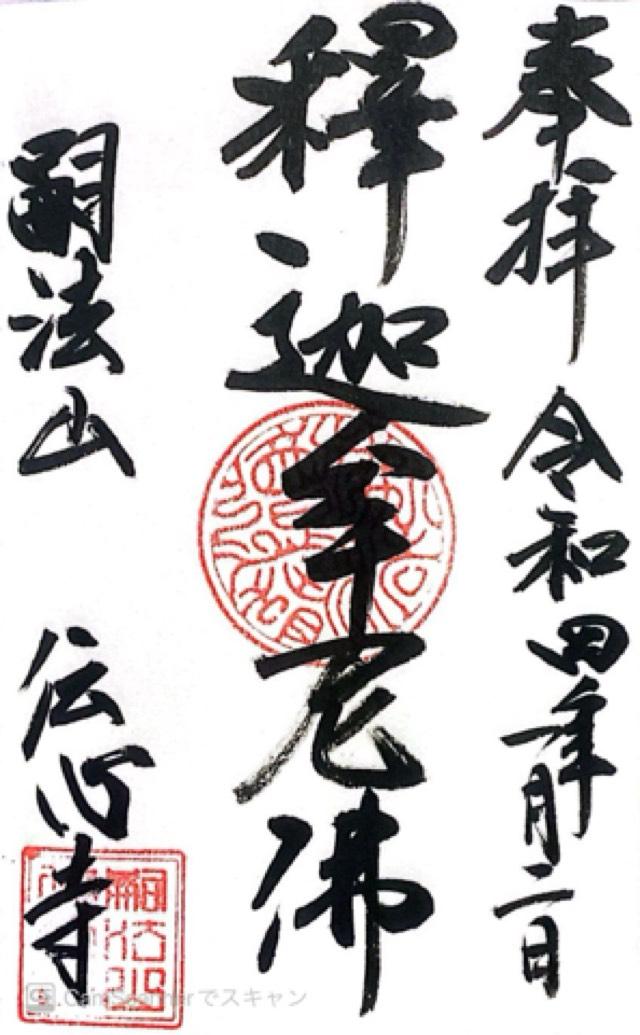 奉拝 令和四年一月二日
釋迦牟尼佛
嗣法山 伝心寺
嗣法山
CamScannerでスキャン